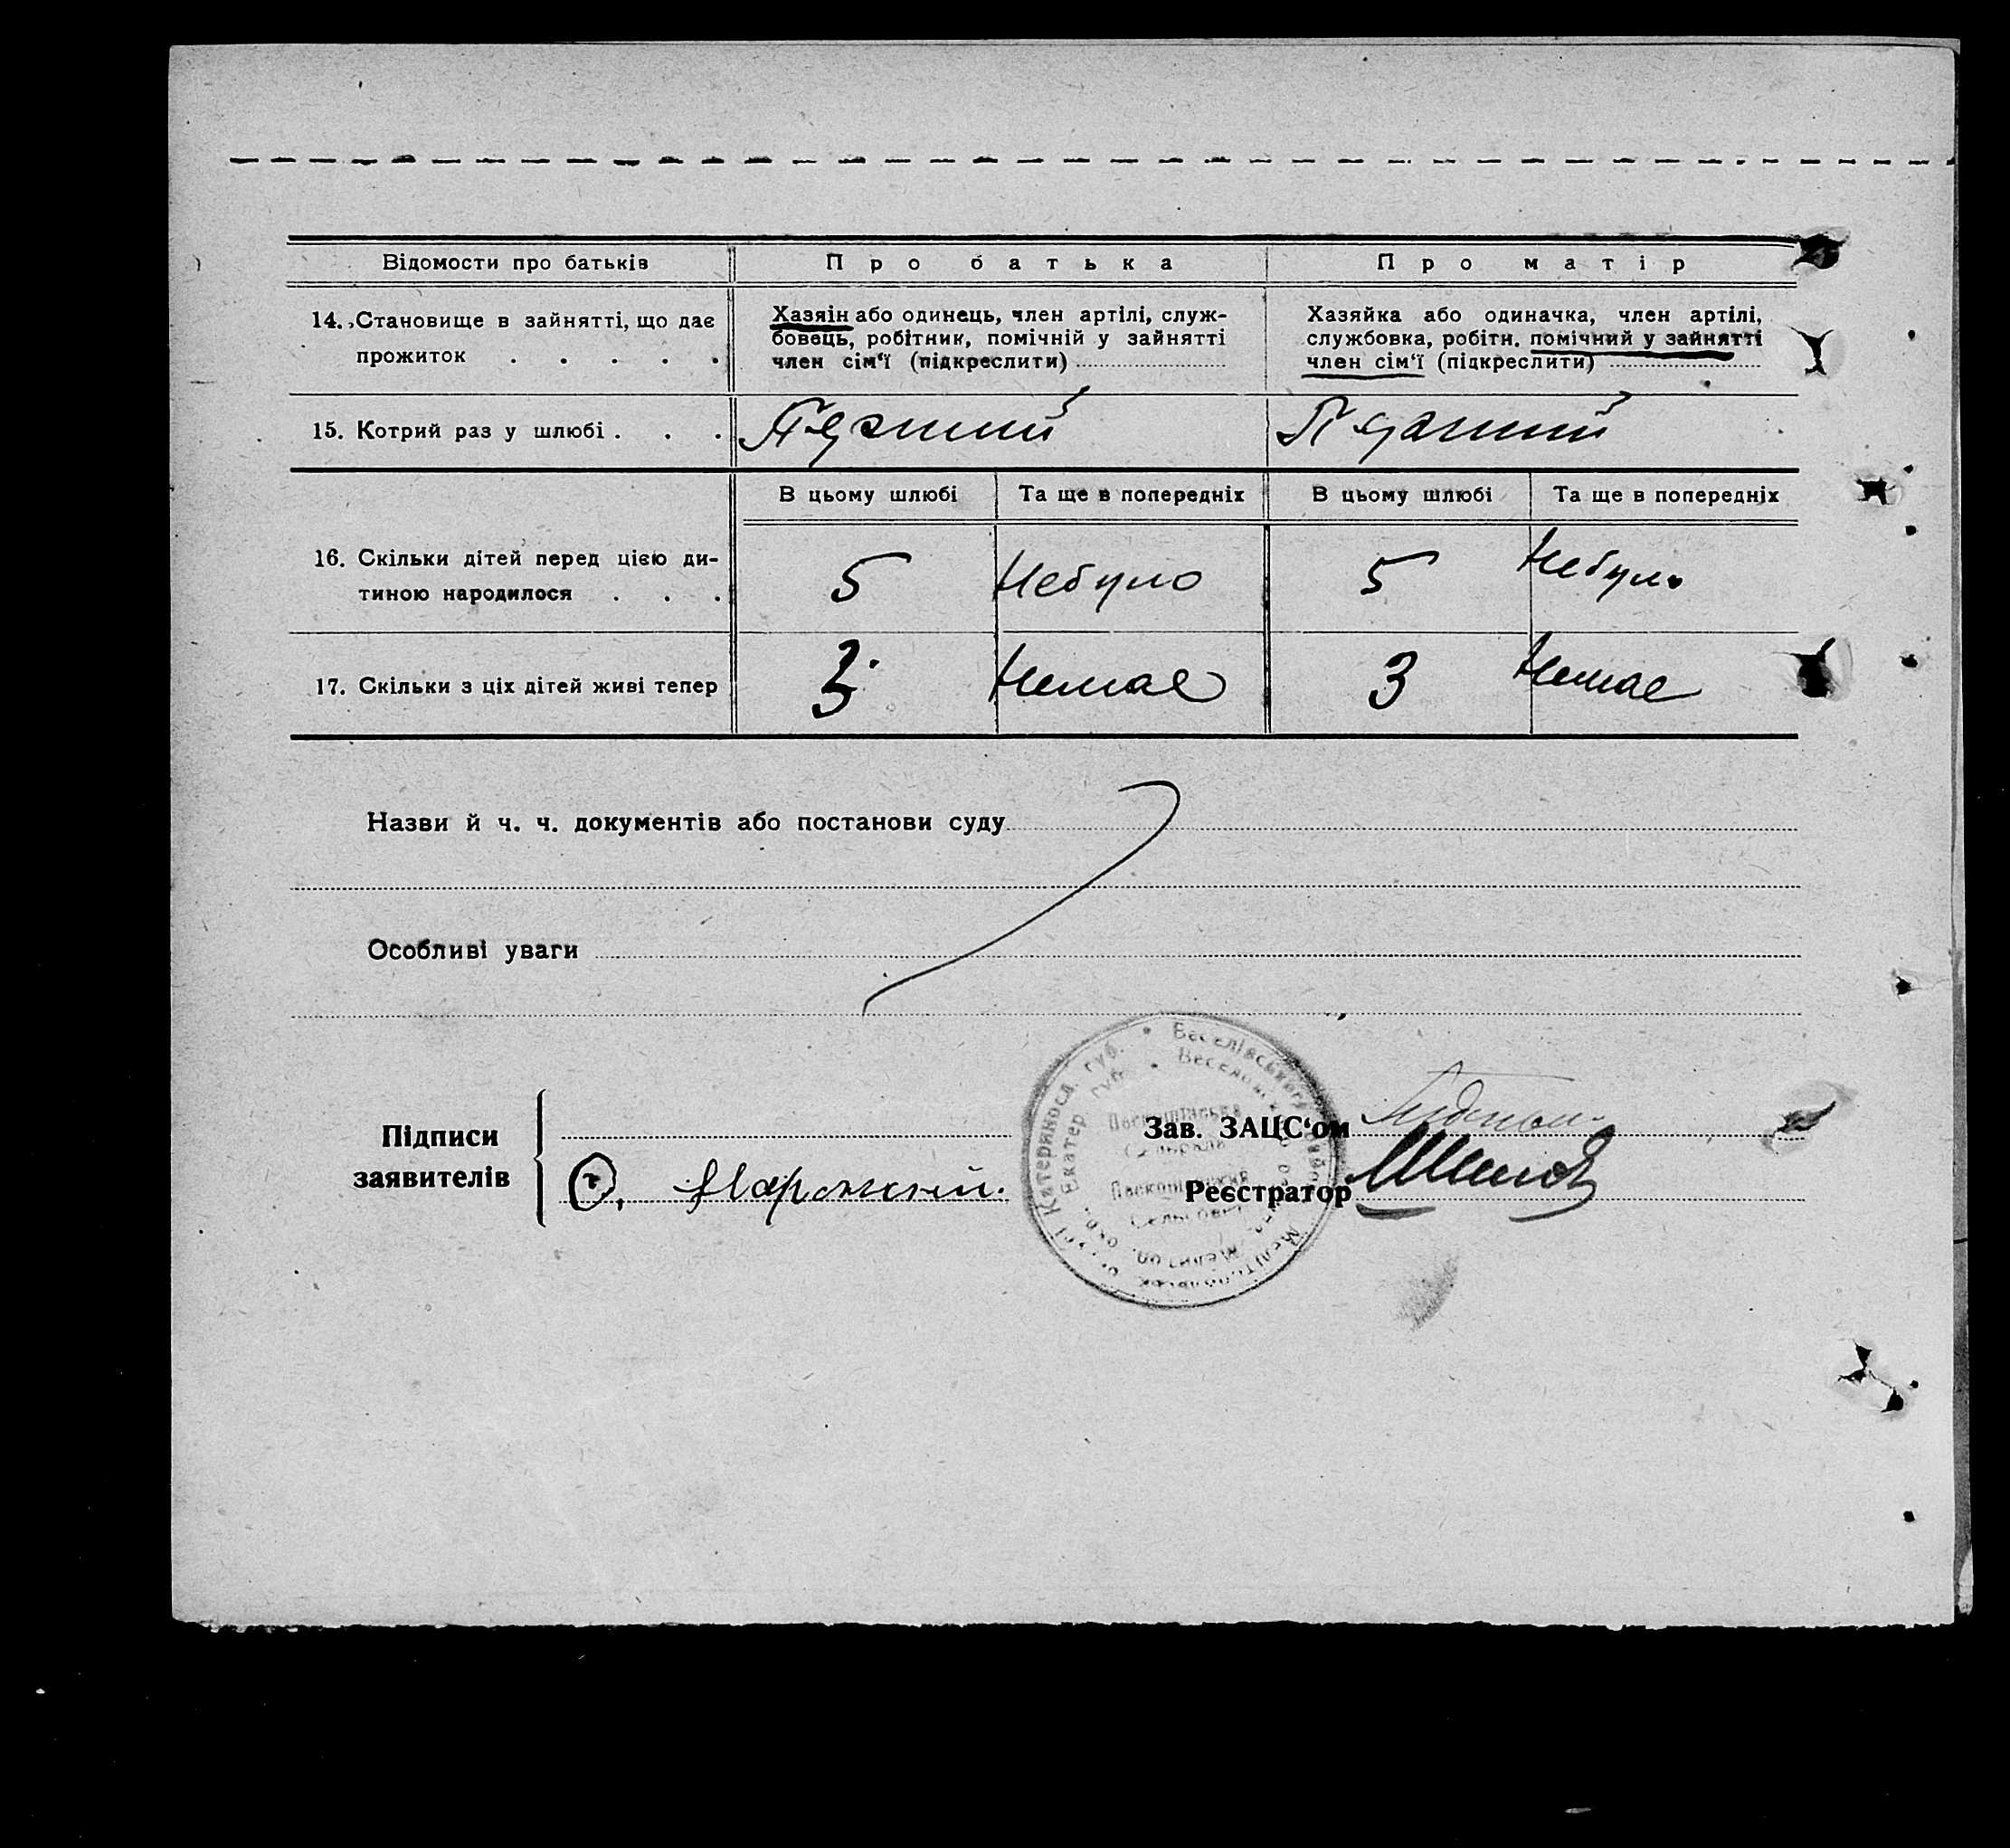 Відомости про батьків
Про батька
Про матір
14. Становище в зайнятті, що дає
прожиток . . . . .
Хазяїн або одинець, член артілі, служ-
бовець, робітник, помічній у зайнятті
член сім‘ї (підкреслити)
Хазяйка або одиначка, член артілі,
службовка, робітн. помічний у зайнятті
член сім‘ї (підкреслити)
15. Котрий раз у шлюбі . . .
В цьому шлюбі
Та ще в попередніх
В цьому шлюбі
Та ще в попередніх
16. Скільки дітей перед цією ди-
тиною народилося . . .
5
Небуло
5
Небуло
17. Скільки з ціх дітей живі тепер
3
Немає
3
Немає
Назви й ч. ч. документів або постанови суду
Особливі уваги
Підписи
заявителів
Зав. ЗАЦС‘ом
Реєстратор